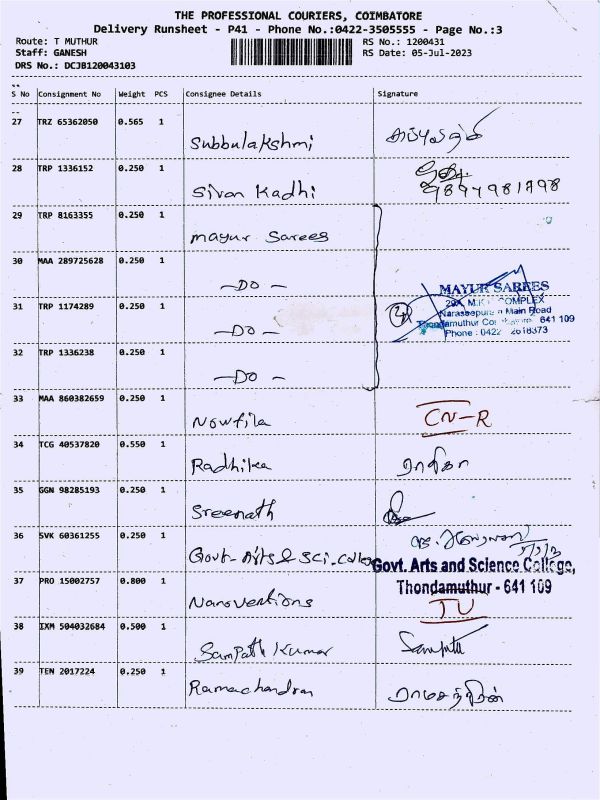 THE PROFESSIONAL COURIERS, COIMBATORE
Delivery Runsheet - P41 - Phone No.:0422-3505555 - Page No.:3
Route: T MUTHUR RS No.: 1200431
Staff: GANESH RS Date: 05-Jul-2023
DRS No.: DCJB120043103
S No Consignment No Weight PCS Consignee Details Signature
27 TRZ 65362050 0.565 1
Subbulakshmi
28 TRP 1336152 0.250 1
Sivan Kadhi 9894981798
29 TRP 8163355 0.250 1
Mayur Sarees
30 MAA 289725628 0.250 1
-DO-
MAYUR SAREES
31 TRP 1174289 0.250 1
COMPLEX
Main Road
-DO- 641 109
Phone : 0422
32 TRP 1336238 0.250 1
-DO-
33 MAA 860382659 0.250 1
Nowfila CN-R
34 TCG 40537820 0.550 1
Radhika ராதிகா
35 GGN 98285193 0.250 1
Sreenath
36 SVK 60361255 0.250 1
Govt-Arts & Sci.College
Govt. Arts and Science College,
37 PRO 15002757 0.800 1
Thondamuthur - 641 109
Nanoventions TU
38 IXM 504032684 0.500 1
Sampath Kumar
39 TEN 2017224 0.250 1
Ramachandran